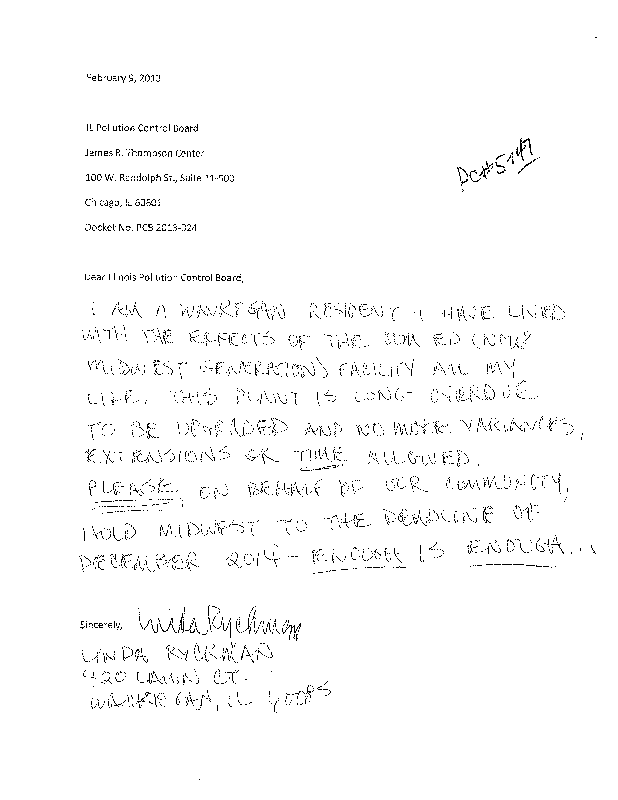 February 9, 2013
IL Pollution Control Board
James R. Thompson Center
100 W. Randolph St., Suite 11-500
Chicago, IL 60601
Docket No. PCB 2013-024
PC#5147
Dear Illinois Pollution Control Board,
I AM A WAUKEGAN RESIDENT & HAVE LIVED
WITH THE EFFECTS OF THE COM ED (NOW
MIDWEST GENERATION) FACILITY ALL MY
LIFE. THIS PLANT IS LONG OVERDUE
TO BE UPGRADED AND NO MORE VARIANCES,
EXTENSIONS OR TIME ALLOWED.
PLEASE, ON BEHALF OF OUR COMMUNITY,
HOLD MIDWEST TO THE DEADLINE OF
DECEMBER 2014 - ENOUGH IS ENOUGH...
Sincerely, Linda Ryckman
LINDA RYCKMAN
420 LAWN CT.
WAUKEGAN, IL 60085